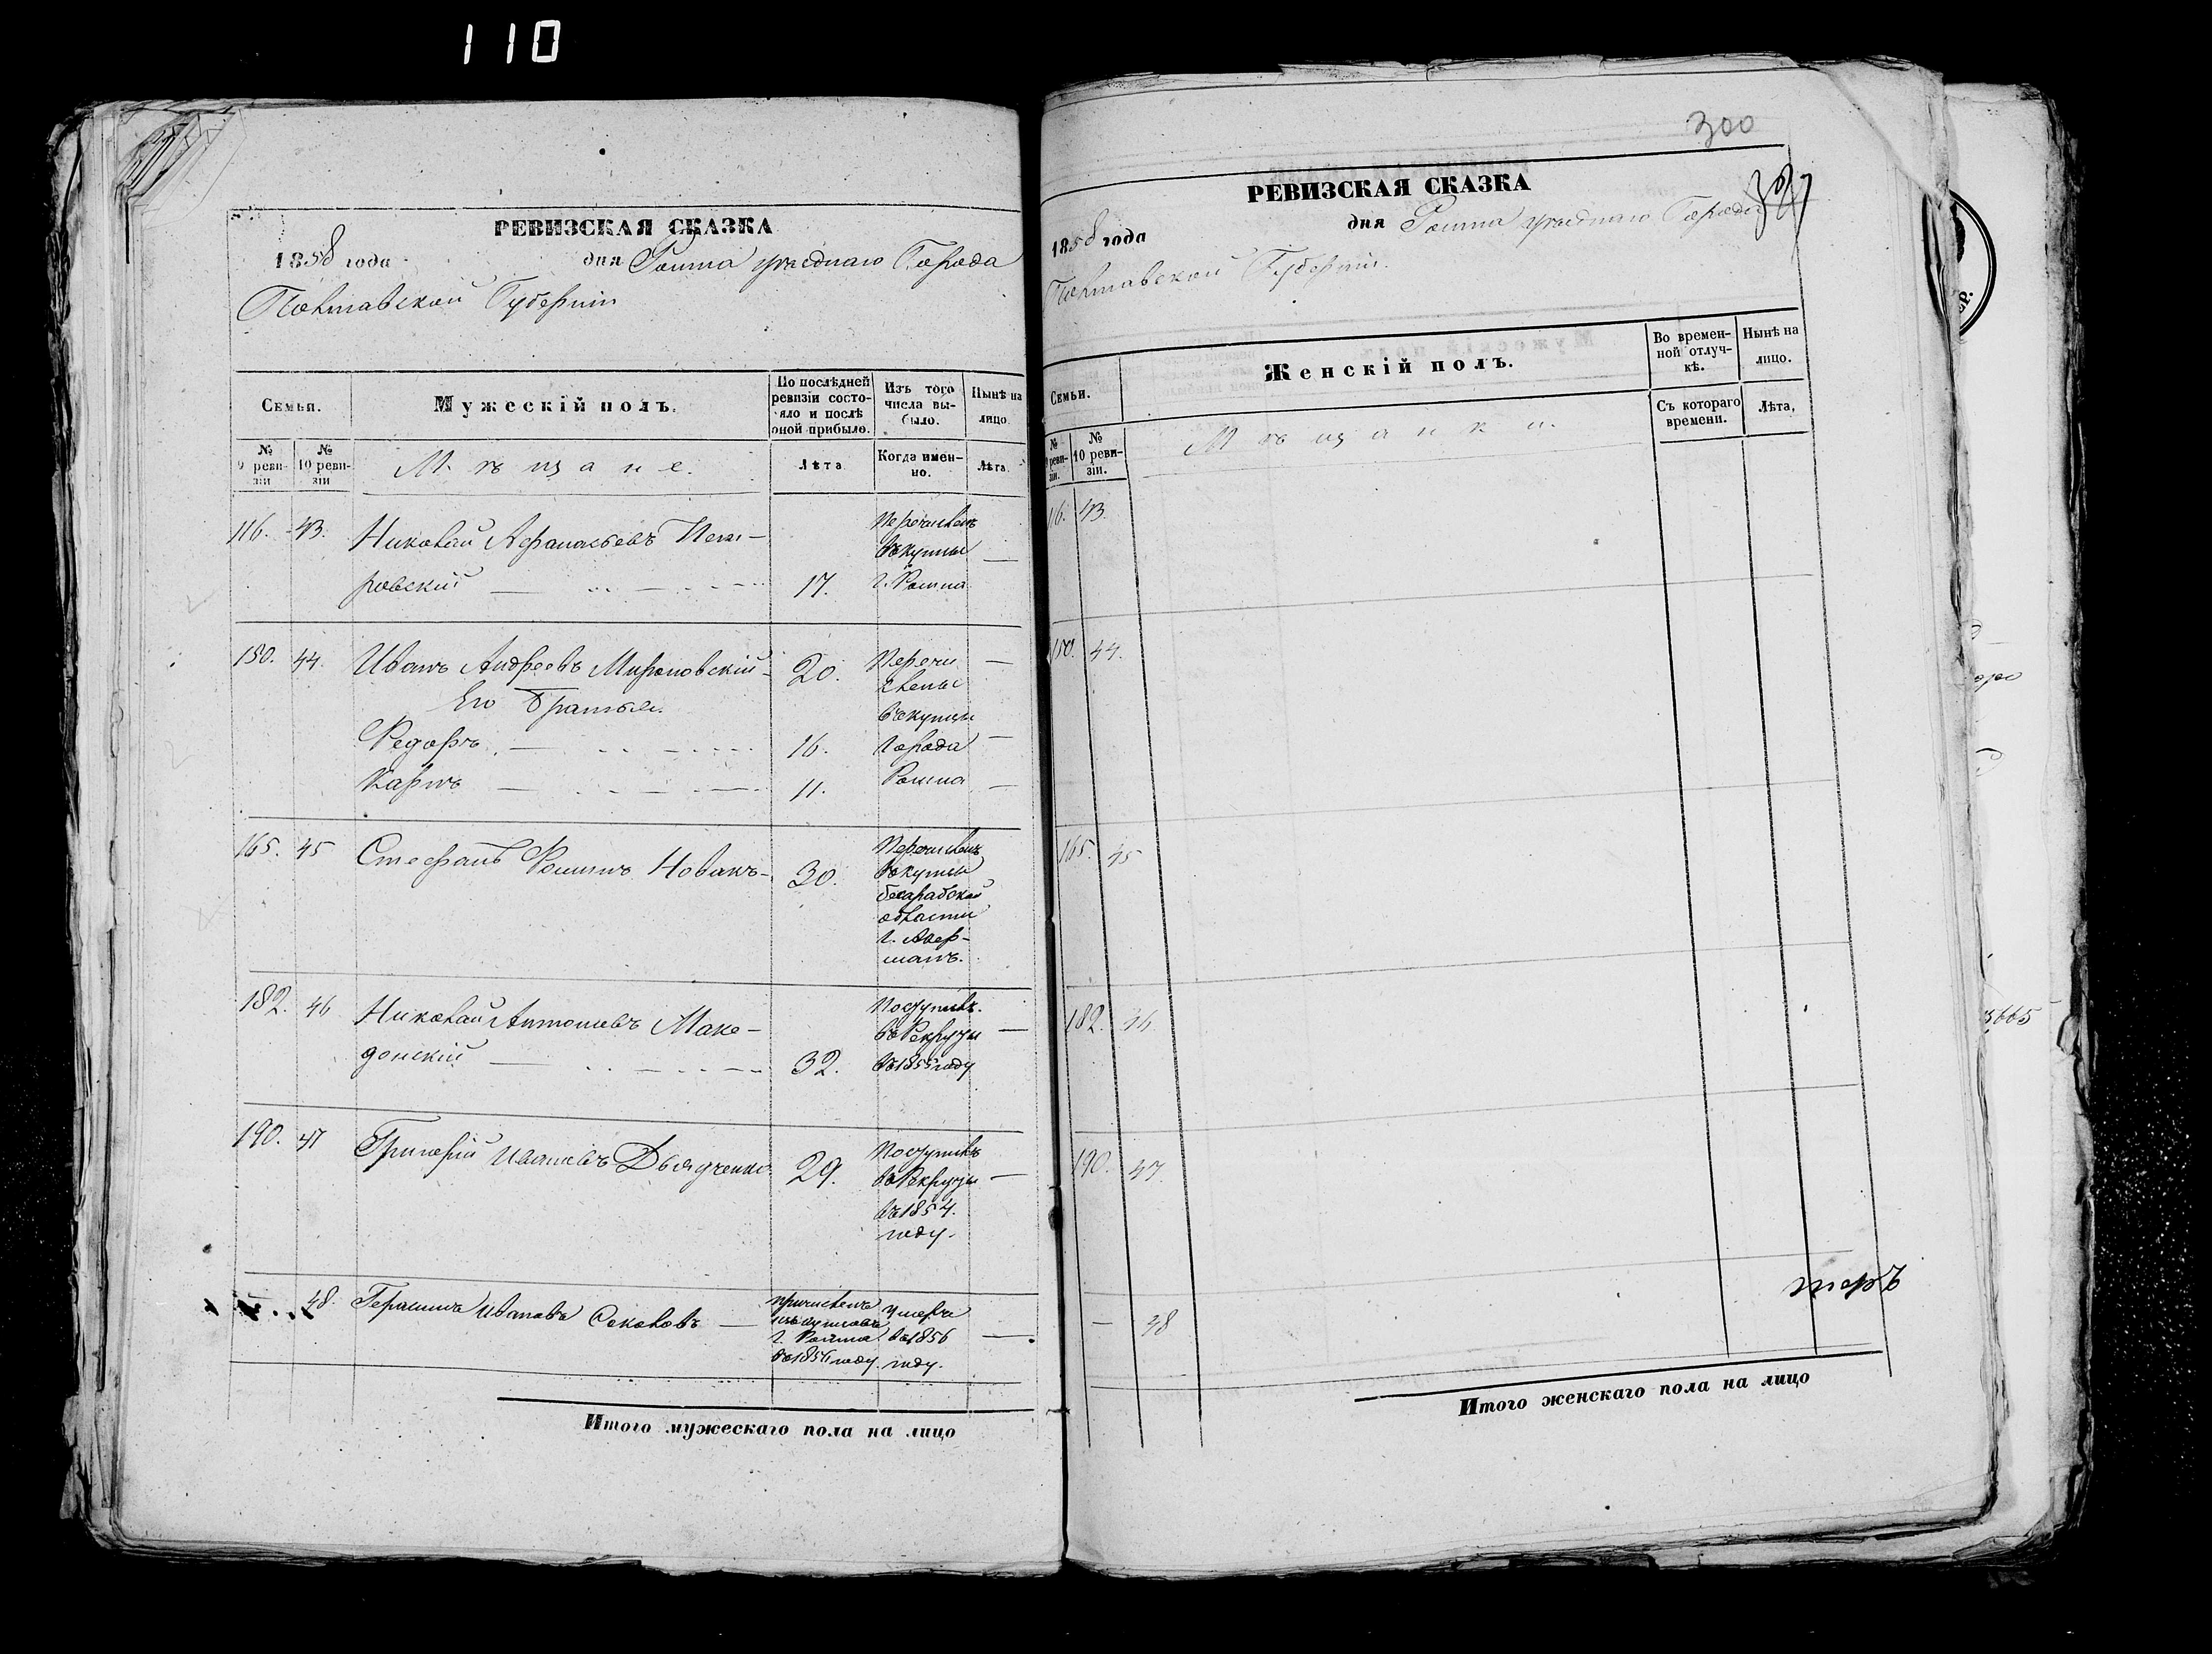 110
РЕВИЗСКАЯ СКАЗКА
1858 года дня Ромна уѣзднаго Города
Полтавской Губерніи
Семьи.
Мужескій полъ.
По послѣдней ревизіи состояло и послѣ оной прибыло.
Изъ того числа выбыло.
Нынѣ на лицо.
№ 9 ревизіи
№ 10 ревизіи
Мѣщане.
Лѣта
Когда именно.
Лѣта.
116. 43. Николай Афанасьевъ Пет-
ровскій 17.
Перечисленъ
въ купцы
г. Ромна
150. 44. Иванъ Андреевъ Мироновскій 20.
Его Братья.
Федоръ 16.
Карпъ 11.
Перечи
слены
въ купцы
города
Ромна
165. 45 Стефанъ Фоминъ Новакъ 30.
Перечисленъ
въ купцы
бесарабской
области
г. Акер-
манъ.
182. 46 Николай Антоновъ Маке-
донскій 32.
Поступилъ
въ Рекруты
въ 1855 году
190. 47 Григорій Ивановъ Дьядченко 29.
Поступилъ
въ Рекруты
въ 1854.
году.
48. Герасимъ Ивановъ Соколовъ
причисленъ
изъ купцовъ
г. Ромна
въ 1854 году.
умеръ
въ 1856
году.
Итого мужескаго пола на лицо
300
РЕВИЗСКАЯ СКАЗКА
1858 года дня Ромна уѣзднаго Города
Полтавской Губерніи.
Семьи.
Женскій полъ.
Во времен-
ной отлуч-
кѣ.
Нынѣ на
лицо.
Съ котораго
времени.
Лѣта,
№ 9 ревизіи.
№ 10 ревизіи.
Мѣщанки.
116. 43.
150. 44.
165. 45
182. 46
190. 47
— 48
Итого женскаго пола на лицо